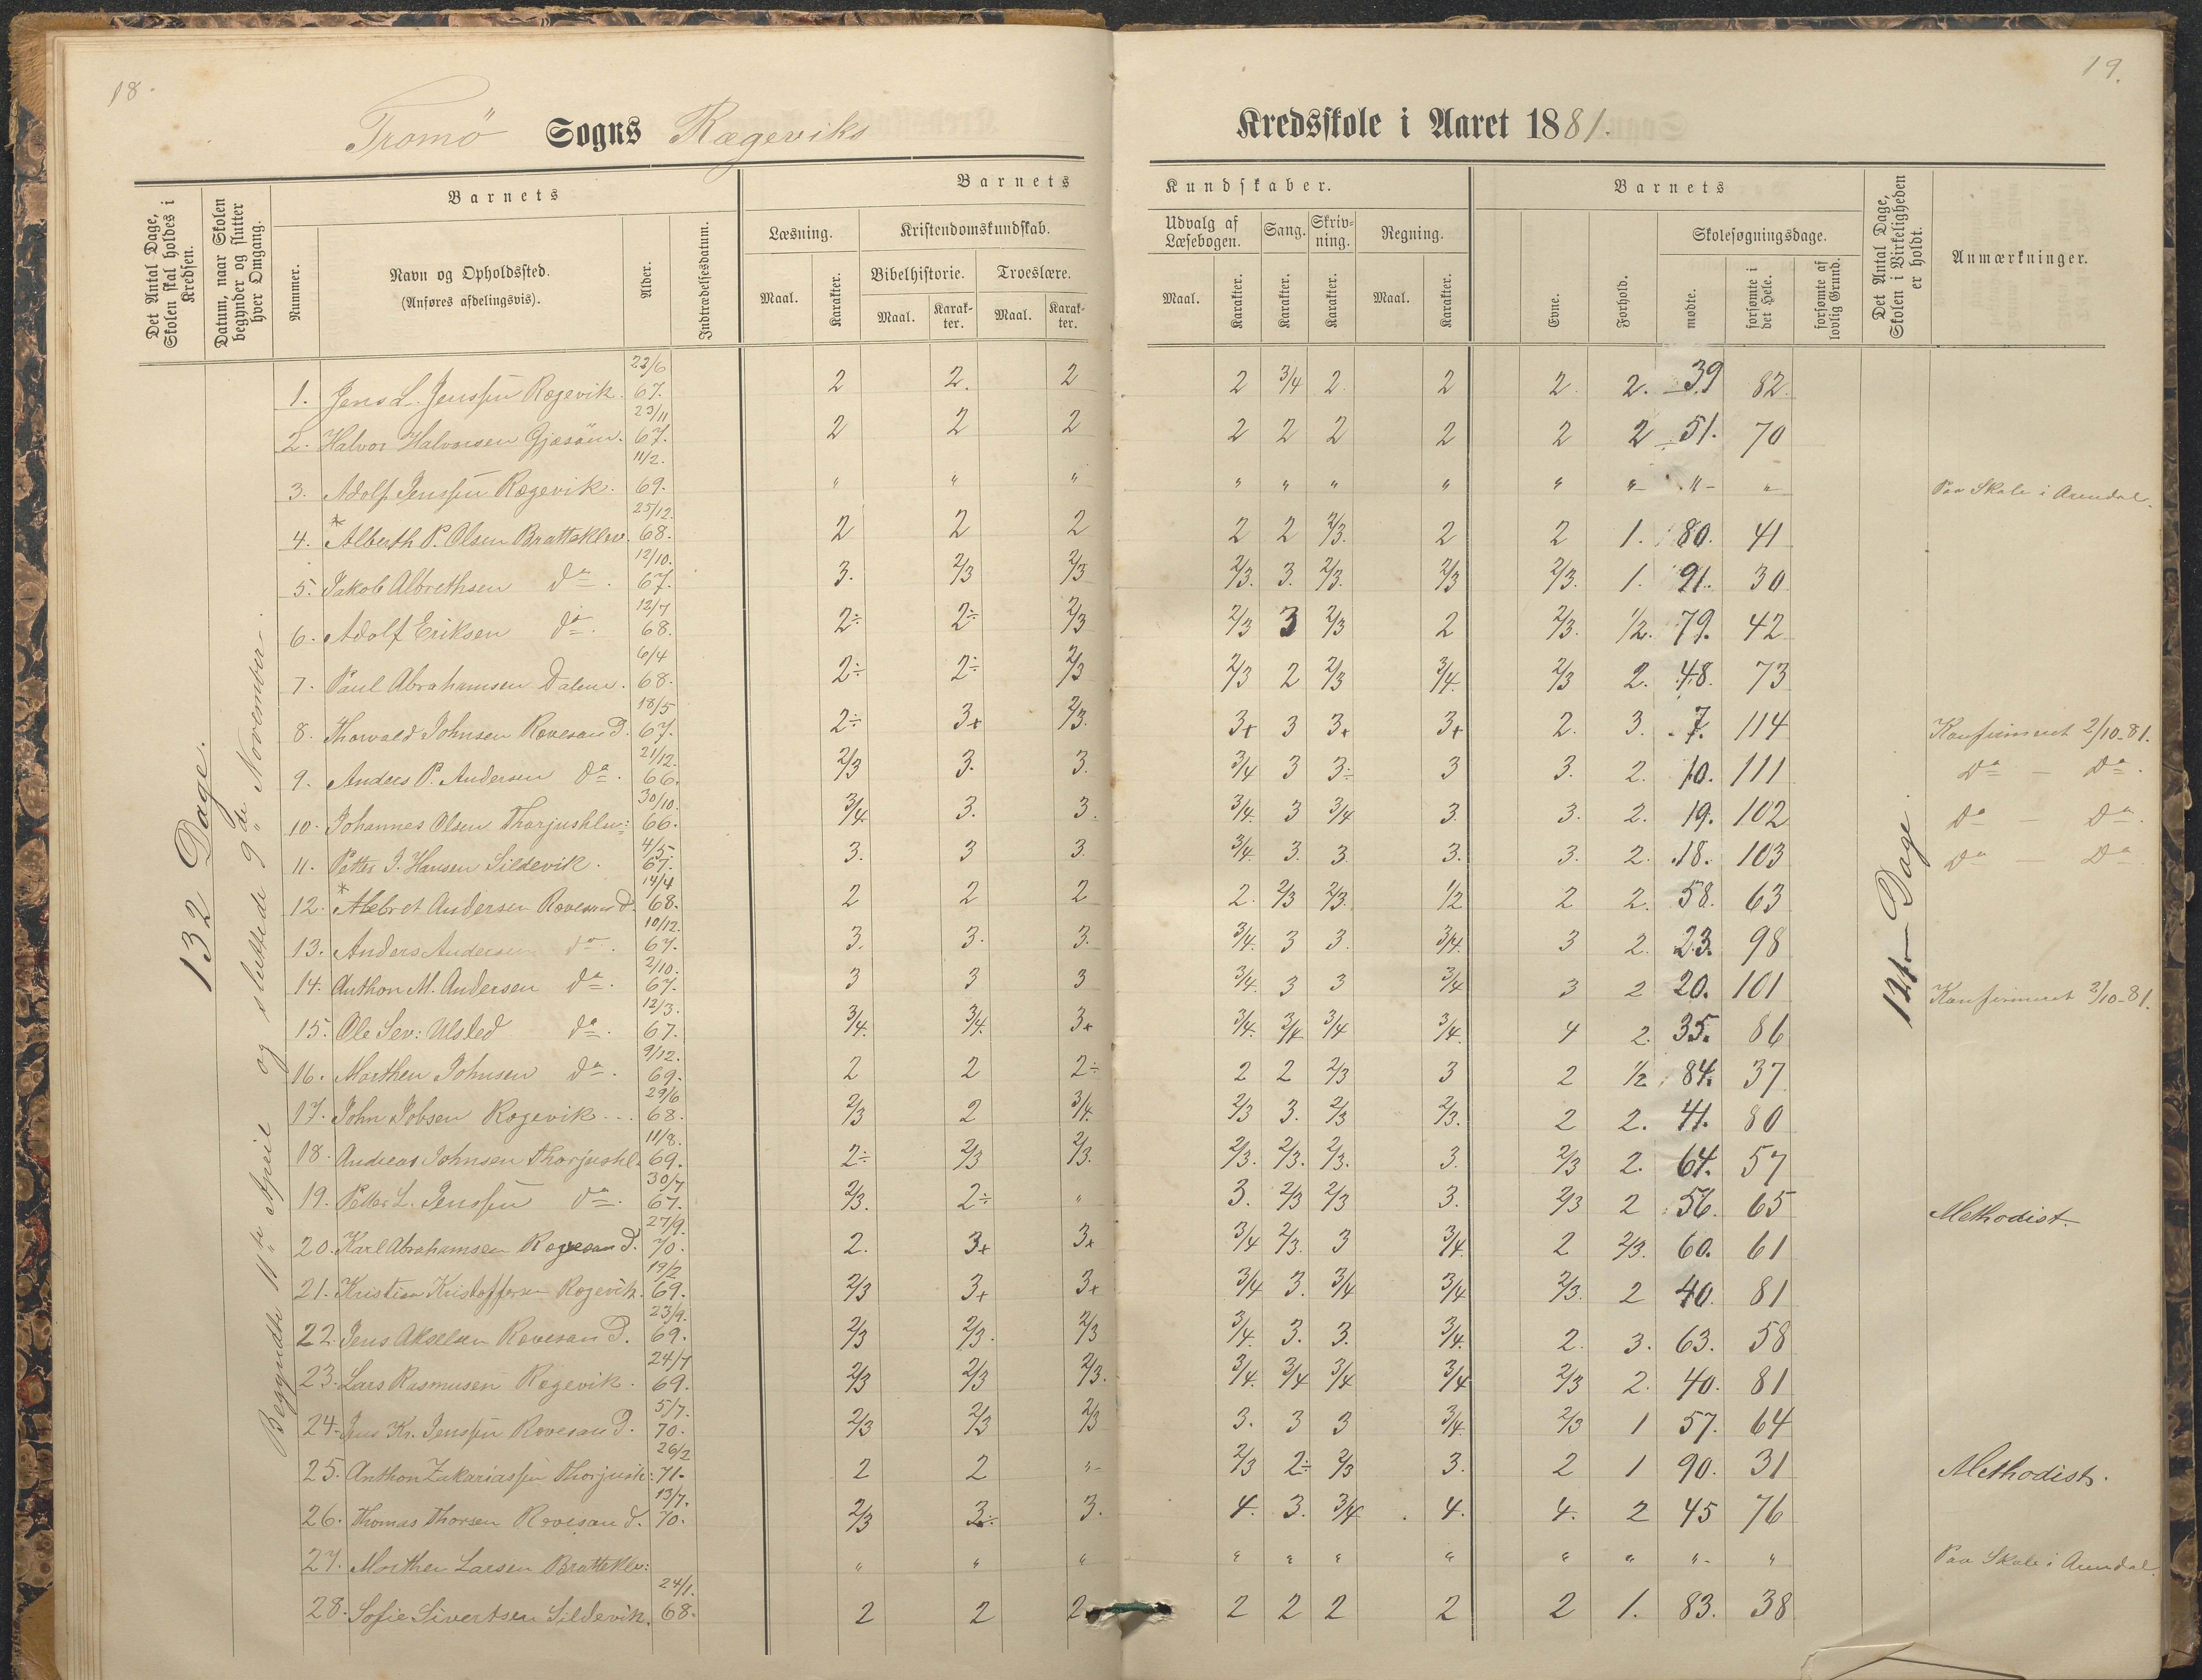 18.
19.
Tromö Sogns Rægeviks Kredsskole i Aaret 1881.
Det Antal Dage, Skolen skal holdes i Kredsen.
Datum, naar Skolen begynder og slutter hver Omgang.
Nummer.
Barnets
Navn og Opholdssted.
(Anføres afdelingsvis).
Alder.
Indtrædelsesdatum.
Barnets Kundskaber.
Læsning.
Maal.
Karakter.
Kristendomskundskab.
Bibelhistorie.
Maal.
Karakter.
Troeslære.
Maal.
Karakter.
Udvalg af Læsebogen.
Maal.
Karakter.
Sang.
Karakter.
Skrivning.
Karakter.
Regning.
Maal.
Karakter.
Barnets
Evne.
Forhold.
Skolesøgningsdage.
mødte.
forsømte i det Hele.
forsømte af lovlig Grund.
Det Antal Dage, Skolen i Virkeligheden er holdt.
Anmærkninger.
132 Dage.
Begyndte 11te April og sluttede 9de November.
121 Dage.
1. Jens L. Jenssen Rægevik. 22/6 67. 2 2. 2 2 3/4 2. 2 2. 2. 39 82.
2. Halvor Halvorsen Gjæsöen. 23/11 67. 2 2 2 2 2 2 2 2 2 51. 70
3. Adolf Jenssen Rægevik. 11/2. 69. " " " " " " " " " " " Paa Skole i Arendal.
4. * Alberth P. Olsen Bratteklev. 25/12. 68. 2 2 2 2 2 2/3. 2 2 1. 80. 41
5. Jakob Albrethsen da. 12/10. 67. 3. 2/3 2/3 2/3. 3. 2/3. 2/3 2/3. 1. 91. 30
6. Adolf Eriksen da. 12/7 68. 2÷ 2÷ 2/3 2/3 3 2/3 2 2/3. 1/2. 79. 42
7. Paul Abrahamsen Dalen. 6/4 68. 2÷ 2÷ 2/3 2/3 2 2/3 3/4. 2/3 2. 48. 73
8. Thorvald Johnsen Revesand. 18/5 67. 2÷ 3+ 2/3. 3+ 3 3+ 3+ 2. 3. 7. 114 Konfirmeret 2/10-81.
9. Anders P. Andersen da. 21/12. 66. 2/3 3. 3. 3/4 3 3÷ 3 3. 2. 10. 111 Da - Da.
10. Johannes Olsen Thorjushl: 30/10. 66. 3/4. 3. 3. 3/4. 3 3/4 3. 3. 2. 19. 102 Da - Da.
11. Petter J. Hansen Sildevik. 4/5. 67. 3. 3 3. 3/4. 3. 3. 3. 3. 2. 18. 103 Da - Da.
12. * Albret Andersen Revesand. 14/4 68. 2 2 2 2. 2/3 2/3. 1/2 2 2. 58. 63
13. Anders Andersen da. 10/12. 67. 3. 3. 3. 3/4. 3 3. 3/4. 3 2. 23. 98
14. Anthon M. Andersen da. 2/10. 67. 3 3 3 3/4. 3 3 3/4 3 2 20. 101 Konfirmeret 2/10-81.
15. Ole Sev: Ulsted da. 12/3. 67. 3/4. 3/4. 3+ 3/4. 3/4 3/4 3/4. 4 2. 35. 86
16. Morthen Johnsen da. 9/12. 69. 2 2 2÷ 2 2 2/3 3 2 1/2 84. 37
17. John Jobsen Rægevik. 29/6 68. 2/3 2 3/4. 2/3 3. 2/3 2/3. 2 2. 41. 80
18. Andreas Johnsen Thorjushl. 11/8. 69. 2÷ 2/3 2/3. 2/3. 2/3. 2/3. 3. 2/3 2. 64. 57
19. Petter L. Jenssen da. 30/7 67. 2/3. 2÷ " 3. 2/3 2/3 3. 2/3 2 56. 65 Methodist.
20. Karl Abrahamsen Revesand. 27/9. 70. 2. 3+ 3+ 3/4 2/3. 3 3/4. 2 2/3. 60. 61
21. Kristian Kristoffersen Rægevik. 19/2 69. 2/3 3+ 3+ 3/4 3. 3/4 3/4 2/3. 2 40. 81
22. Jens Akselsen Revesand. 23/9. 69. 2/3 2/3. 2/3 3/4. 3. 3. 3/4. 2. 3. 63. 58
23. Lars Rasmusen Rægevik. 24/7 69. 2/3 2/3 2/3. 3/4. 3/4 3/4 3/4 2/3 2. 40. 81
24. Jens Kr. Jenssen Revesand. 5/7. 70. 2/3 2/3 2/3 3. 3 3 3/4. 2/3 1 57. 64
25. Anthon Zakariassen Thorjush: 26/2 71. 2 2 " 2/3 2÷ 2/3 3. 2 1 90. 31 Methodist.
26. Thomas Thorsen Revesand. 13/7. 70. 2/3 3÷ 3. 4. 3. 3/4 4. 4. 2 45 76
27. Morthen Larsen Bratteklv: " " " " " " " " " " " Paa Skole i Arendal.
28. Sofie Sivertsen Sildevik. 24/1. 68. 2 2 2 2 2 2 2 2 1. 83. 38